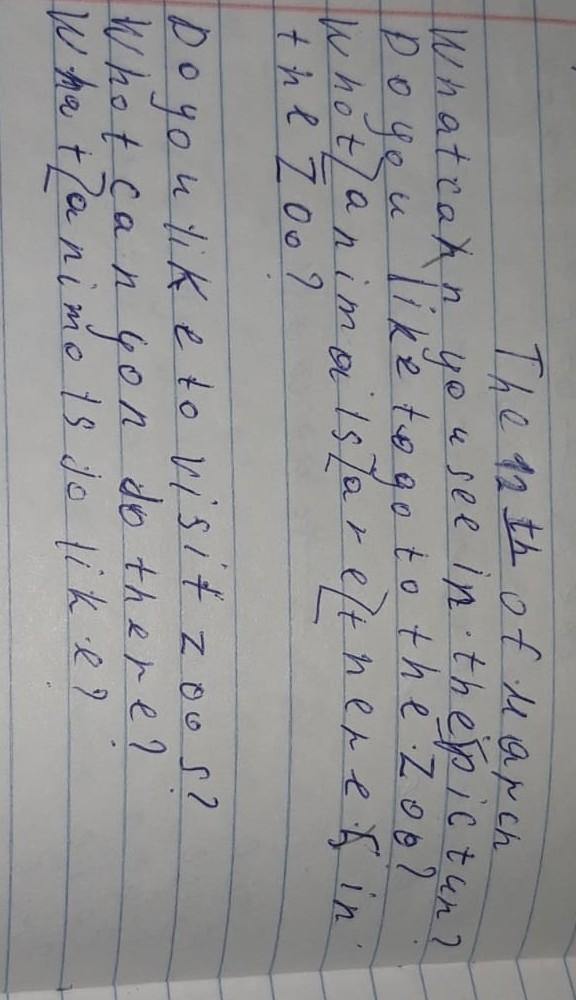 The 12th of March
What can you see in the pictur?
Do you like to go to the Zoo?
What animals are there in
the Zoo?
Do you like to visit zoos?
What can you do there?
What animals do like?